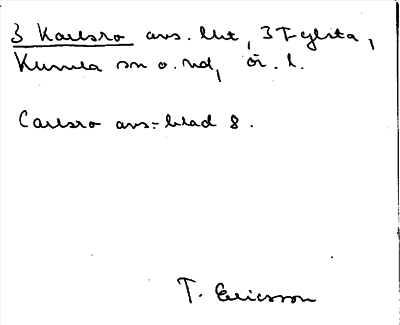 3 Karlsro avs. lht, 3 Fylsta,
Kumla sn o. hd, ör. l.
Carlsro avs:- blad 8.
T. Ericsson